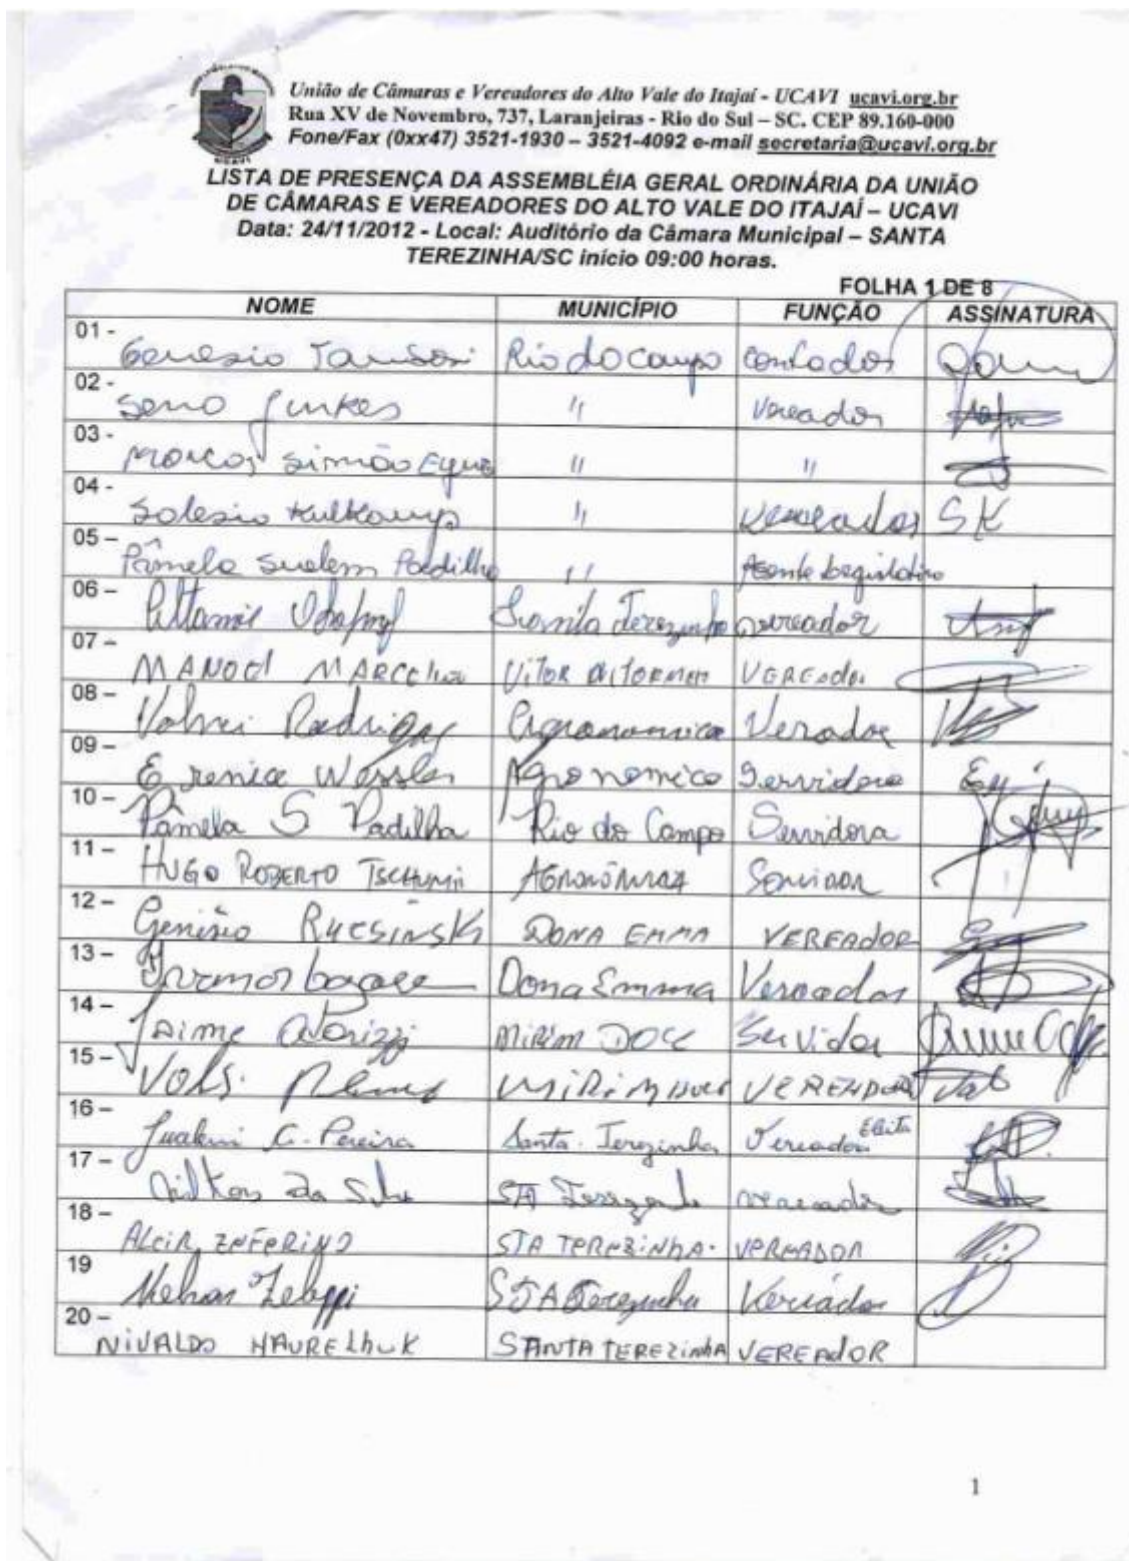 União de Câmaras e Vereadores do Alto Vale do Itajaí - UCAVI ucavi.org.br
Rua XV de Novembro, 737, Laranjeiras - Rio do Sul – SC. CEP 89.160-000
Fone/Fax (0xx47) 3521-1930 – 3521-4092 e-mail secretaria@ucavi.org.br
UCAVI
LISTA DE PRESENÇA DA ASSEMBLÉIA GERAL ORDINÁRIA DA UNIÃO
DE CÂMARAS E VEREADORES DO ALTO VALE DO ITAJAÍ – UCAVI
Data: 24/11/2012 - Local: Auditório da Câmara Municipal – SANTA
TEREZINHA/SC início 09:00 horas.
FOLHA 1 DE 8
NOME MUNICÍPIO FUNÇÃO ASSINATURA
01 - Genesio Rio do Campo Contador
02 - Junkes " Vereador
03 - Marcos Simão " "
04 - Solesio " Vereador SK
05 - Pâmela Suelem Padilha " Agente Legislativo
06 - Santa Terezinha Vereador
07 - MANOEL Vitor VEREADOR
08 – Valnei Rodrigues Agronomica Verador
09 – Erenice Wessler Agronomica Servidora
10 – Pâmella S Padilha Rio do Campo Servidora
11 – HUGO ROBERTO TSCHUMI AGRONÔMICA SERVIDOR
12 – Genésio RUCSINSKI DONA EMMA VEREADOR
13 – Dona Emma Vereador
14 – Jaime MIRIM DOCE Servidor
15 – MIRIM DOCE VEREADOR
16 – C. Pereira Santa Terezinha Vereador Eleita
17 – Nilton Da Silva STA Terezinha vereador
18 – ALCIR ZEFERINO STA TEREZINHA. VEREADOR
19 STA Terezinha Vereador
20 – NIVALDO HAURELHUK SANTA TEREZINHA VEREADOR
1